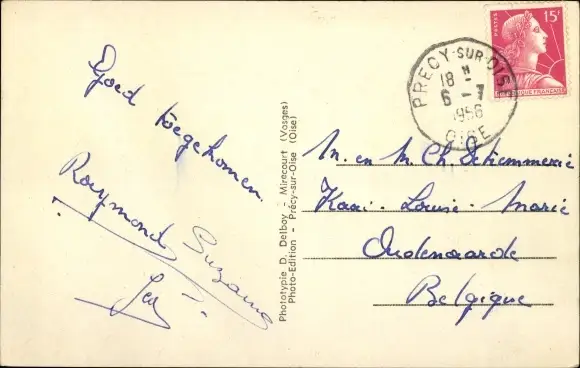 Goed toegekomen.
Raymond Suzanne
Phototypie D. Delboy - Mirecourt (Vosges)
Photo-Edition - Précy-sur-Oise (Oise)
POSTES
15F
REPUBLIQUE FRANÇAISE
PRECY-SUR-OISE
18 H
6 - 7
1956
OISE
M. en M. Ch.
Kaai - Louise - Marie
Oudenaarde
Belgique